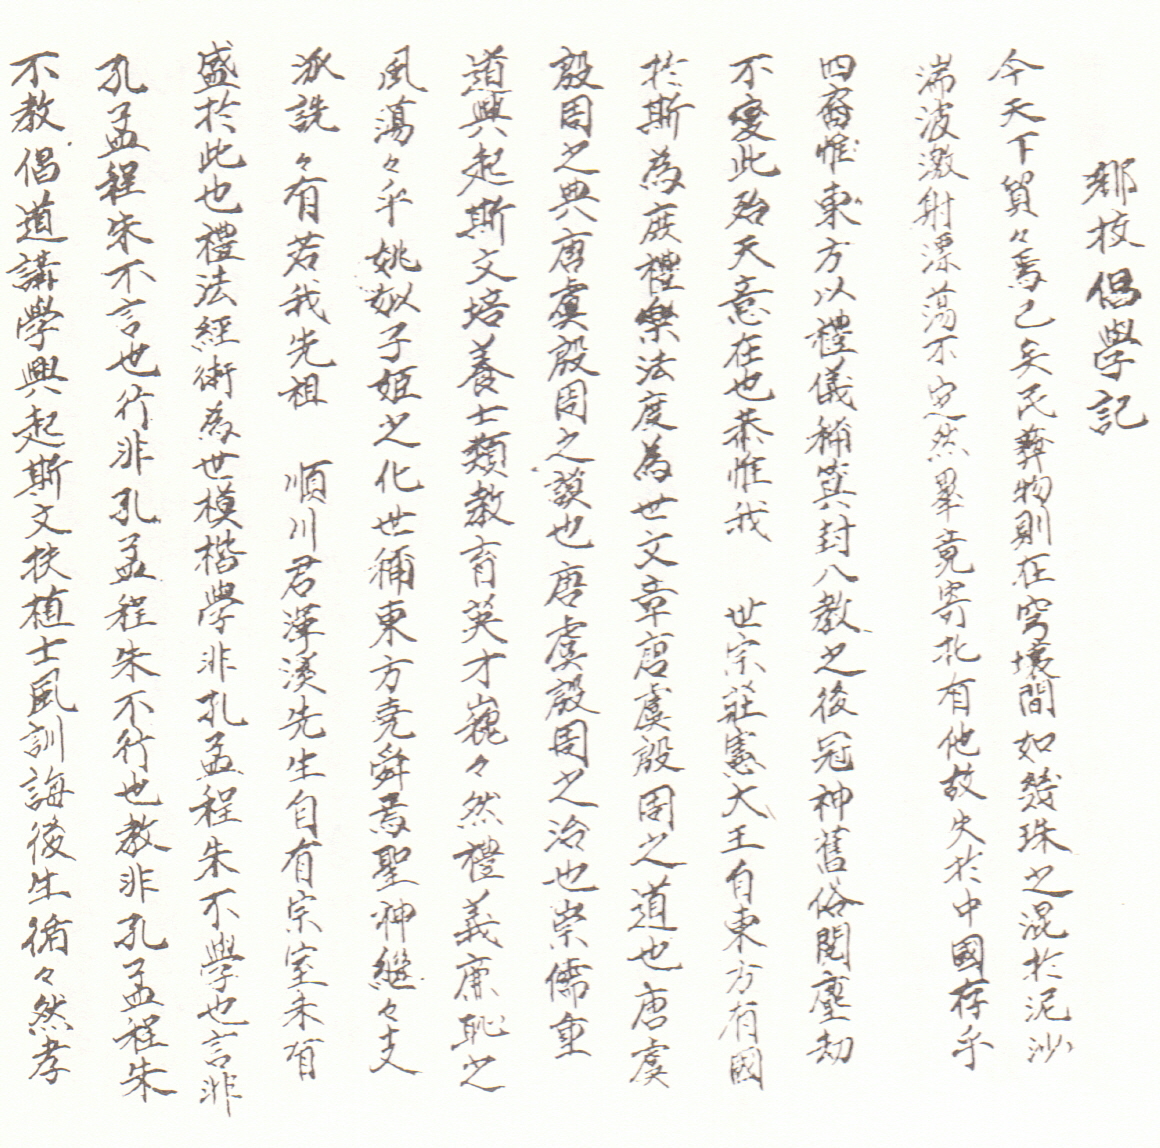 鄕校倡學記
今天下貿々焉已矣民彛物則在穹壤間如幾珠之混於泥沙
湍波激射漂蕩不定然畢竟寄托有他故失於中國存乎
四裔惟東方以禮儀稱箕封八教之後冠神舊俗閱塵劫
不變此殆天意在也恭惟我 世宗莊憲大王自東方有國
於斯為庶禮樂法度為世文章唐虞殷周之道也唐虞
殷周之典唐虞殷周之謨也唐虞殷周之治也崇儒重
道興起斯文培養士類教育英才巍々然禮義廉恥之
風蕩々乎姚姒子姬之化世稱東方堯舜焉聖神繼々支
派詵々有若我先祖 順川君渾溪先生自有宗室未有
盛於此也禮法經術為世模楷學非孔孟程朱不學也言非
孔孟程朱不言也行非孔孟程朱不行也教非孔孟程朱
不教倡道講學興起斯文扶植士風訓誨後生循々然孝